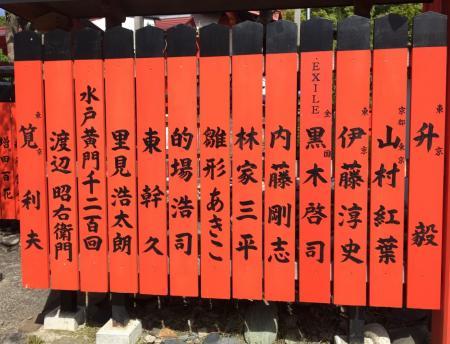 東京 升毅
京都 東京 山村紅葉
東京 伊藤淳史
EXILE 全国 黒木啓司
内藤剛志
林家三平
雛形あきこ
的場浩司
東幹久
里見浩太朗
水戸黄門千二百回
渡辺昭右衛門
東京 筧利夫
増田百花